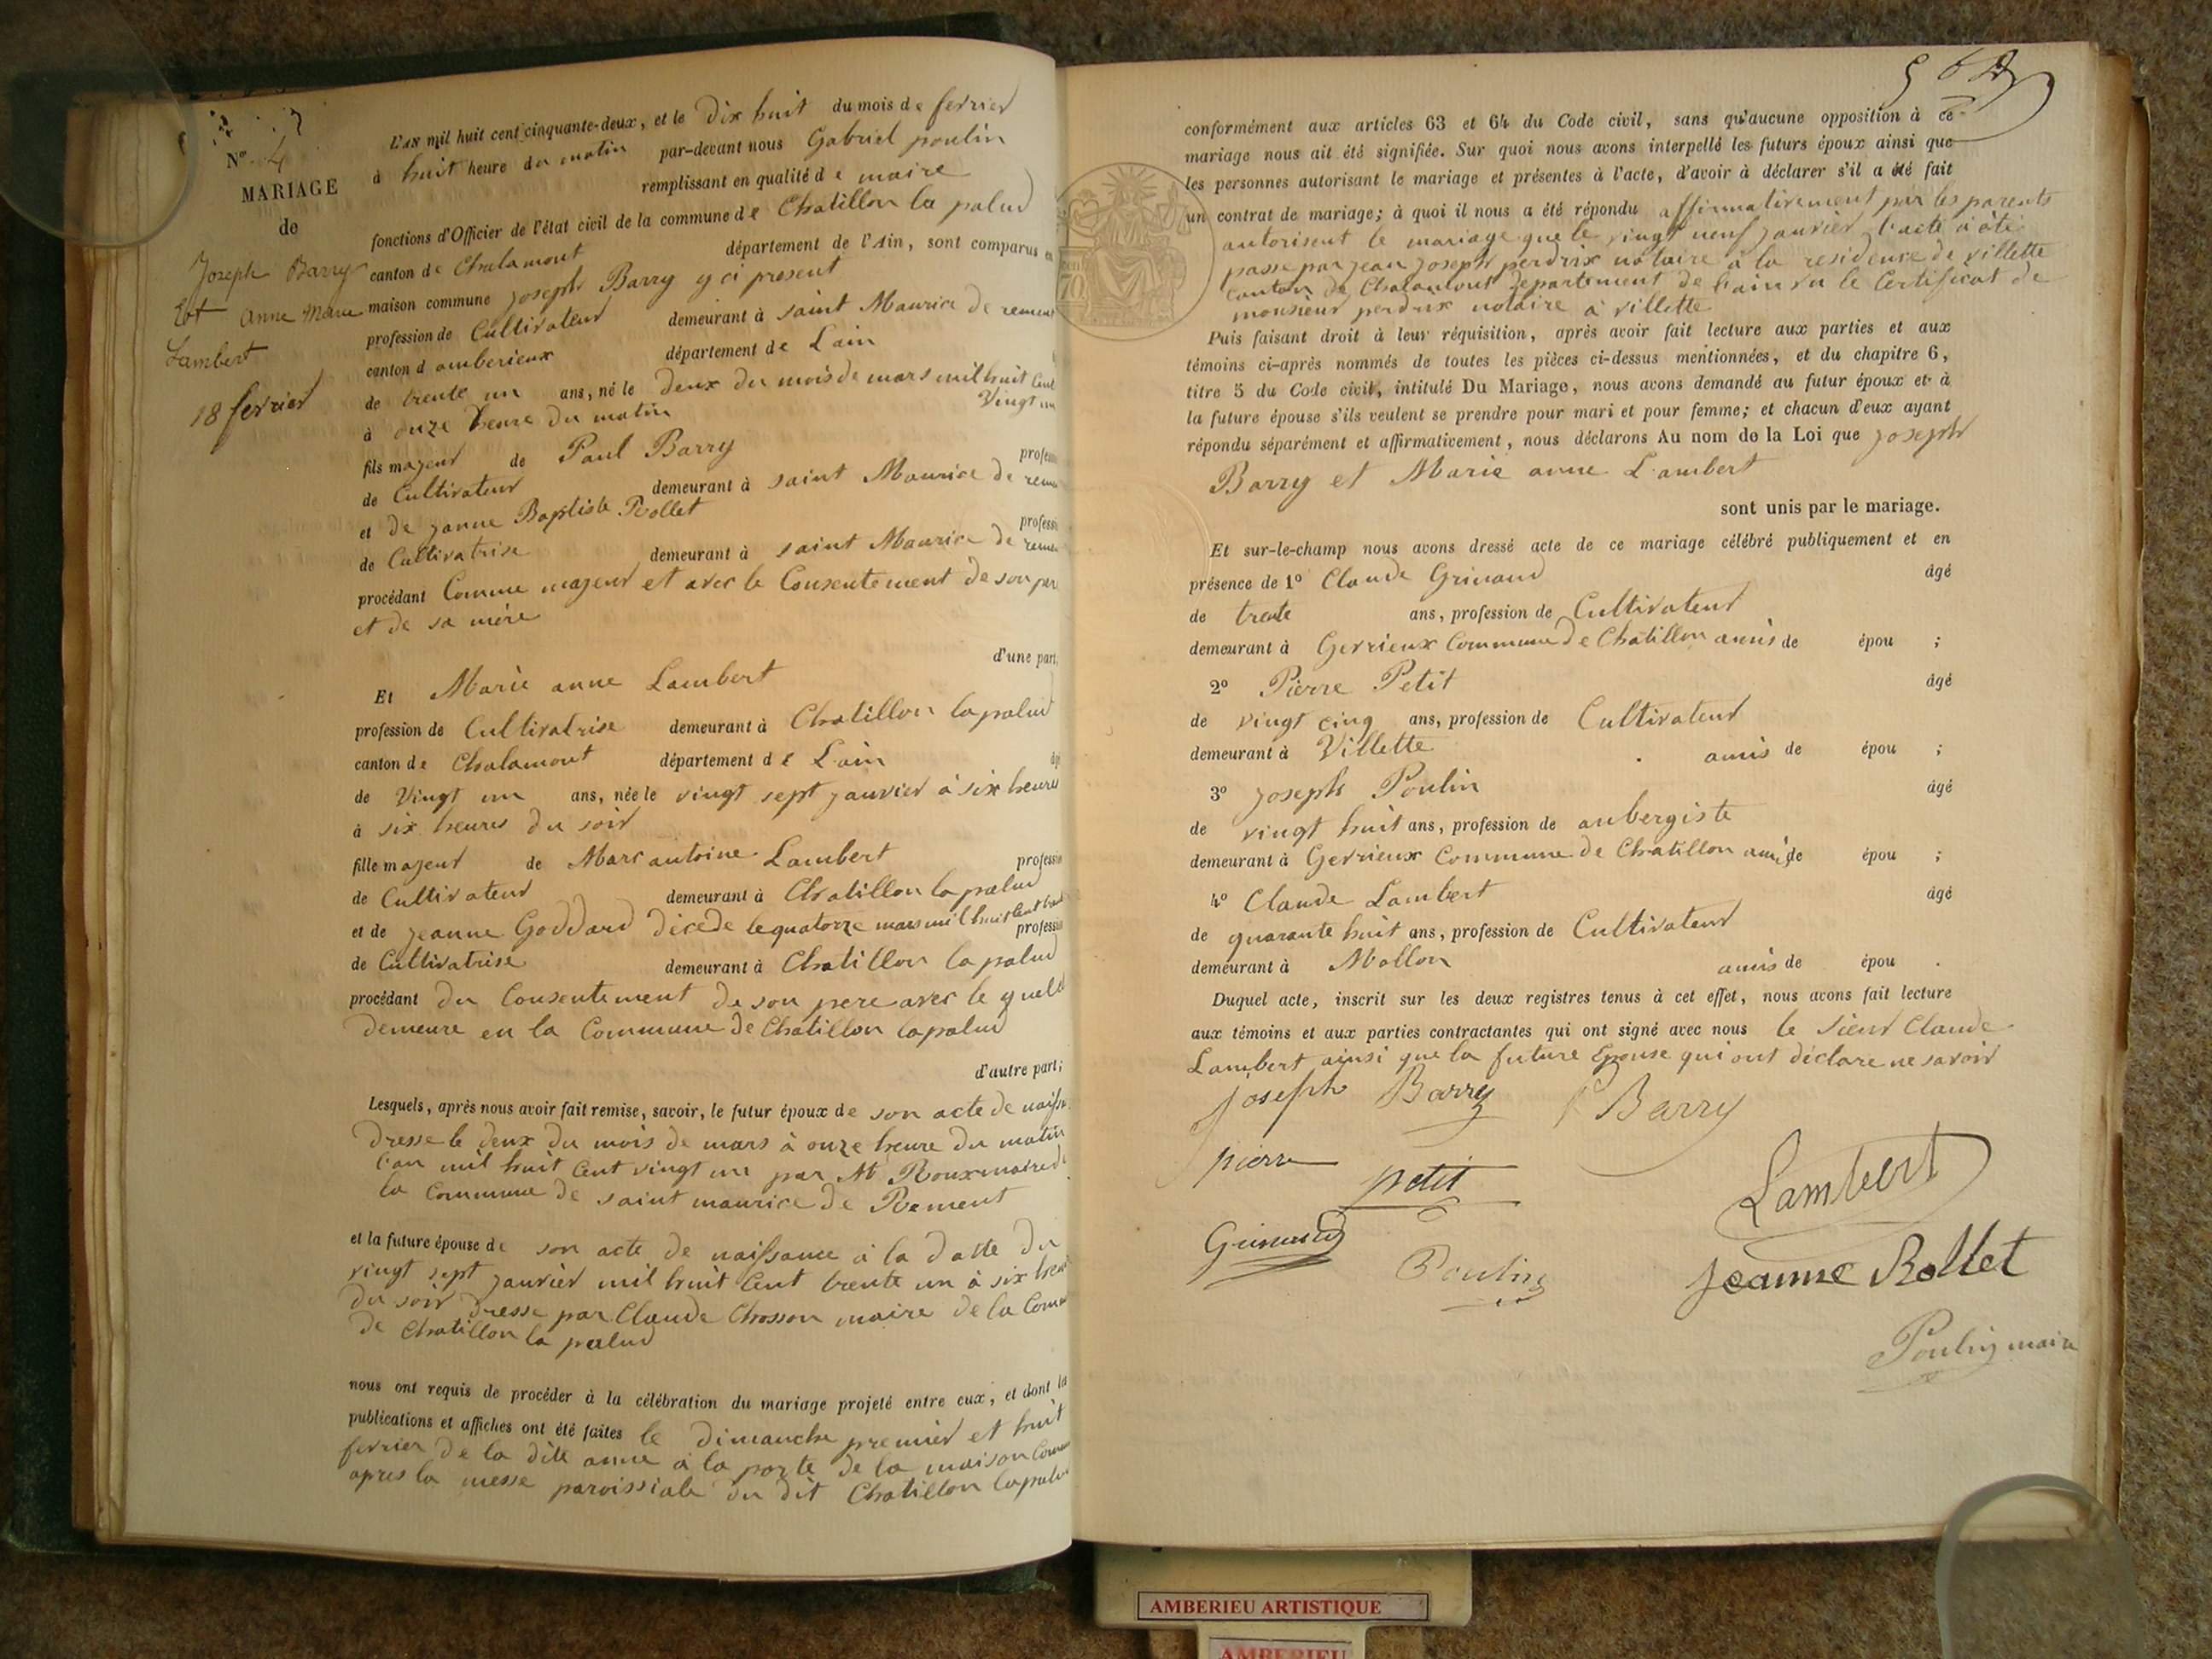 N° 4
MARIAGE
de
Joseph Barry
Et Anne Marie
Lambert
18 fevrier
L'AN mil huit cent cinquante-deux, et le Dix huit du mois de fevrier
à huit heure du matin par-devant nous Gabriel poulin
remplissant en qualité de maire
fonctions d'Officier de l'état civil de la commune de Chatillon la palud
canton de Chalamont département de l'Ain, sont comparus en
maison commune Joseph Barry y ci present
profession de Cultivateur demeurant à saint Maurice de remens
canton d amberieux département de L'ain
de trente un ans, né le deux du mois de mars mil huit Cent
Vingt un
à onze heure du matin
fils majeur de Paul Barry profess
de Cultivateur demeurant à saint Maurice de reme
et de janne Baptiste Rollet professi
de Cultivatrise demeurant à saint Maurice de reme
procédant Comme majeur et avec le Consentement de son per
et de sa mère
d'une part,
Et Marie anne Lambert
profession de Cultivatrise demeurant à Chatillon la palud
canton de Chalamont département de L'ain
de Vingt un ans, née le vingt sept janvier à six heures
à six heures du soir
fille majeur de Marc antoine Lambert professio
de Cultivateur demeurant à Chatillon la palud
et de jeanne Goddard décéde le quatorze mars mil huit Cent
professio
de Cultivatrise demeurant à Chatillon la palud
procédant du Consentement de son pere avec le quel
demeure en la Commune de Chatillon la palud
d'autre part;
Lesquels, après nous avoir fait remise, savoir, le futur époux de son acte de naiss
Dresse le deux du mois de mars à onze heure du matin
l'an mil huit Cent vingt un par Mr Roux maire de
la Commune de saint maurice de Rement
et la future épouse de son acte de naissance à la datte du
vingt sept janvier mil huit Cent trente un à six heur
du soir dresse par Claude Chosson maire de la Com
de Chatillon la palud
nous ont requis de procéder à la célébration du mariage projeté entre eux, et dont les
publications et affiches ont été faites le dimanche premier et huit
fevrier de la dite anne à la porte de la maison Comm
apres la messe paroissiale du dit Chatillon la palud
conformément aux articles 63 et 64 du Code civil, sans qu'aucune opposition à ce
mariage nous ait été signifiée. Sur quoi nous avons interpellé les futurs époux ainsi que
les personnes autorisant le mariage et présentes à l'acte, d'avoir à déclarer s'il a été fait
un contrat de mariage; à quoi il nous a été répondu affirmativement par les parents
autorisent le mariage que le vingt neuf janvier l'acte à été
passe par jean joseph perdrix notaire à la residence de villette
canton de Chalamont departement de l'ain vu le Certificat de
monsieur perdrix notaire à villette
Puis faisant droit à leur réquisition, après avoir fait lecture aux parties et aux
témoins ci-après nommés de toutes les pièces ci-dessus mentionnées, et du chapitre 6,
titre 5 du Code civil, intitulé Du Mariage, nous avons demandé au futur époux et à
la future épouse s'ils veulent se prendre pour mari et pour femme; et chacun d'eux ayant
répondu séparément et affirmativement, nous déclarons Au nom de la Loi que joseph
Barry et Marie anne Lambert
sont unis par le mariage.
Et sur-le-champ nous avons dressé acte de ce mariage célébré publiquement et en
présence de 1° Claude Grinand âgé
de trente ans, profession de Cultivateur
demeurant à Gevrieux Commune de Chatillon amis de épou ;
2° Pierre Petit âgé
de vingt cinq ans, profession de Cultivateur
demeurant à Villette amis de épou ;
3° joseph Poulin âgé
de vingt huit ans, profession de aubergiste
demeurant à Gevrieux Commune de Chatillon ami de épou ;
4° Claude Lambert âgé
de quarante huit ans, profession de Cultivateur
demeurant à Mollon amis de épou .
Duquel acte, inscrit sur les deux registres tenus à cet effet, nous avons fait lecture
aux témoins et aux parties contractantes qui ont signé avec nous le sieur Claude
Lambert ainsi que la future Epouse qui ont déclare ne savoir
joseph Barry P Barry
pierre petit
Lambert
Grinand
Poulin
jeanne Rollet
Poulin maire
AMBERIEU ARTISTIQUE
AMBERIEU